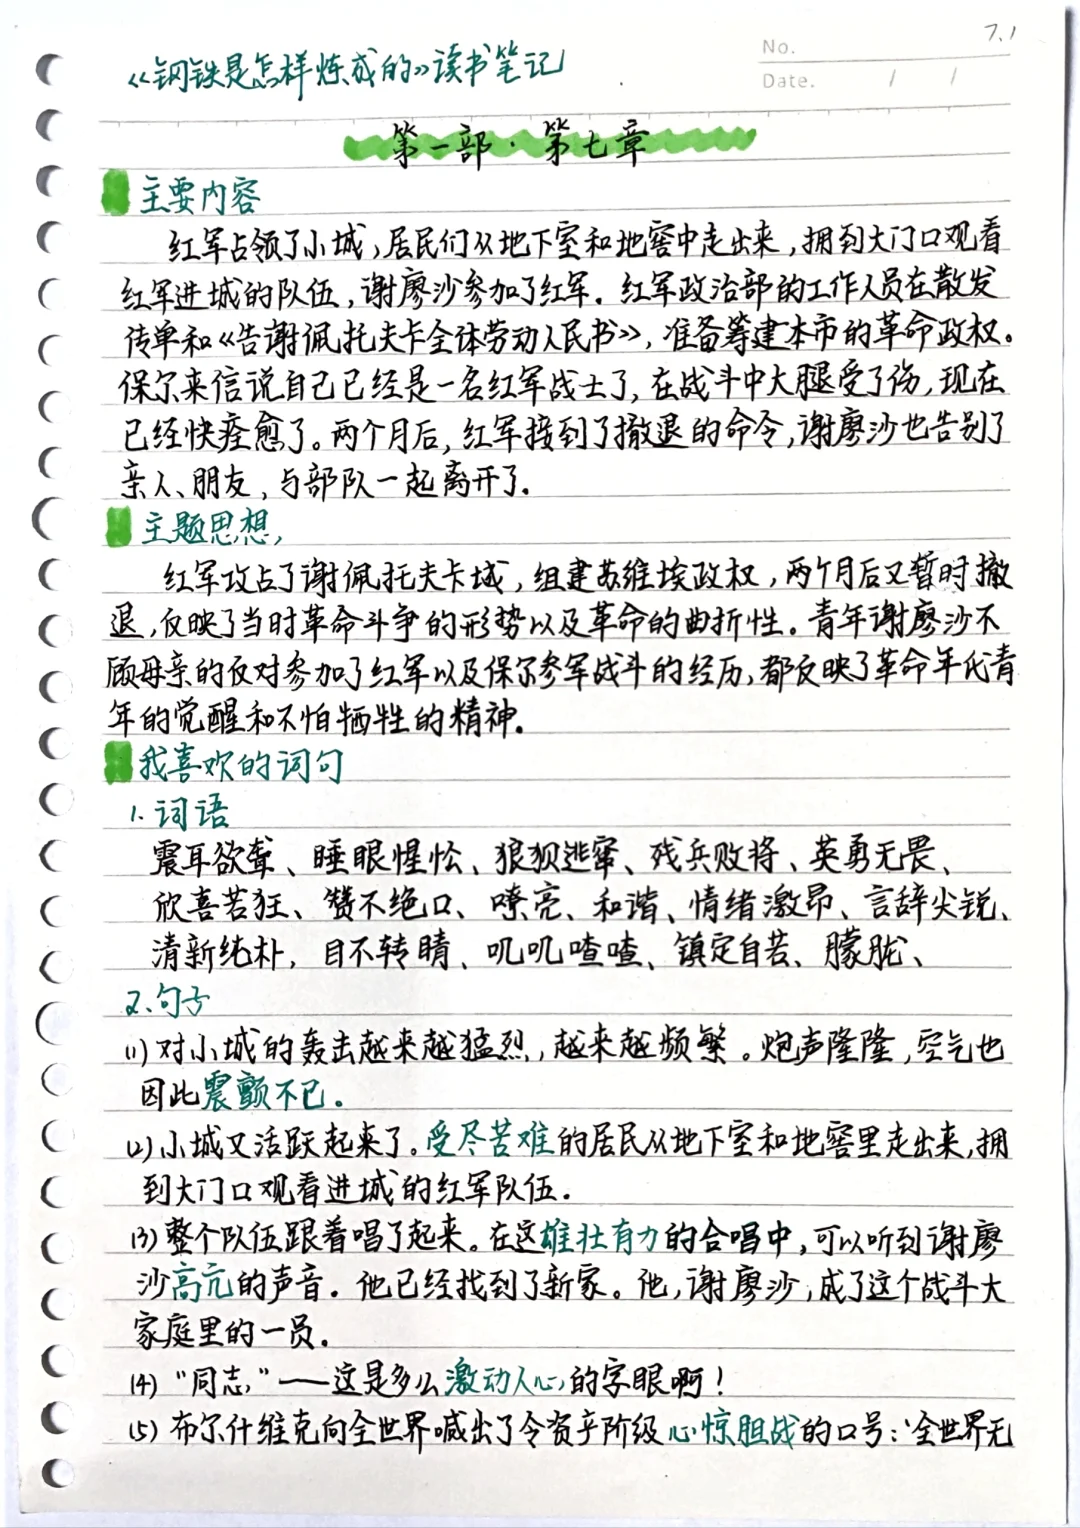 7.1
No.
Date. / /
《钢铁是怎样炼成的》读书笔记
第一部·第七章
主要内容
红军占领了小城,居民们从地下室和地窖中走出来,拥到大门口观看
红军进城的队伍,谢廖沙参加了红军。红军政治部的工作人员在散发
传单和《告谢佩托夫卡全体劳动人民书》,准备筹建本市的革命政权。
保尔来信说自己已经是一名红军战士了,在战斗中大腿受了伤,现在
已经快痊愈了。两个月后,红军接到了撤退的命令,谢廖沙也告别了
亲人、朋友,与部队一起离开了。
主题思想
红军攻占了谢佩托夫卡城,组建苏维埃政权,两个月后又暂时撤
退,反映了当时革命斗争的形势以及革命的曲折性。青年谢廖沙不
顾母亲的反对参加了红军以及保尔参军战斗的经历,都反映了革命年代青
年的觉醒和不怕牺牲的精神。
我喜欢的词句
1.词语
震耳欲聋、睡眼惺忪、狼狈逃窜、残兵败将、英勇无畏、
欣喜若狂、赞不绝口、嘹亮、和谐、情绪激昂、言辞尖锐、
清新纯朴,目不转睛、叽叽喳喳、镇定自若、朦胧、
2.句子
(1)对小城的轰击越来越猛烈,越来越频繁。炮声隆隆,空气也
因此震颤不已。
(2)小城又活跃起来了。受尽苦难的居民从地下室和地窖里走出来,拥
到大门口观看进城的红军队伍。
(3)整个队伍跟着唱了起来。在这雄壮有力的合唱中,可以听到谢廖
沙高亢的声音。他已经找到了新家。他,谢廖沙,成了这个战斗大
家庭里的一员。
(4)“同志,”——这是多么激动人心的字眼啊!
(5)布尔什维克向全世界喊出了令资产阶级心惊胆战的口号:‘全世界无